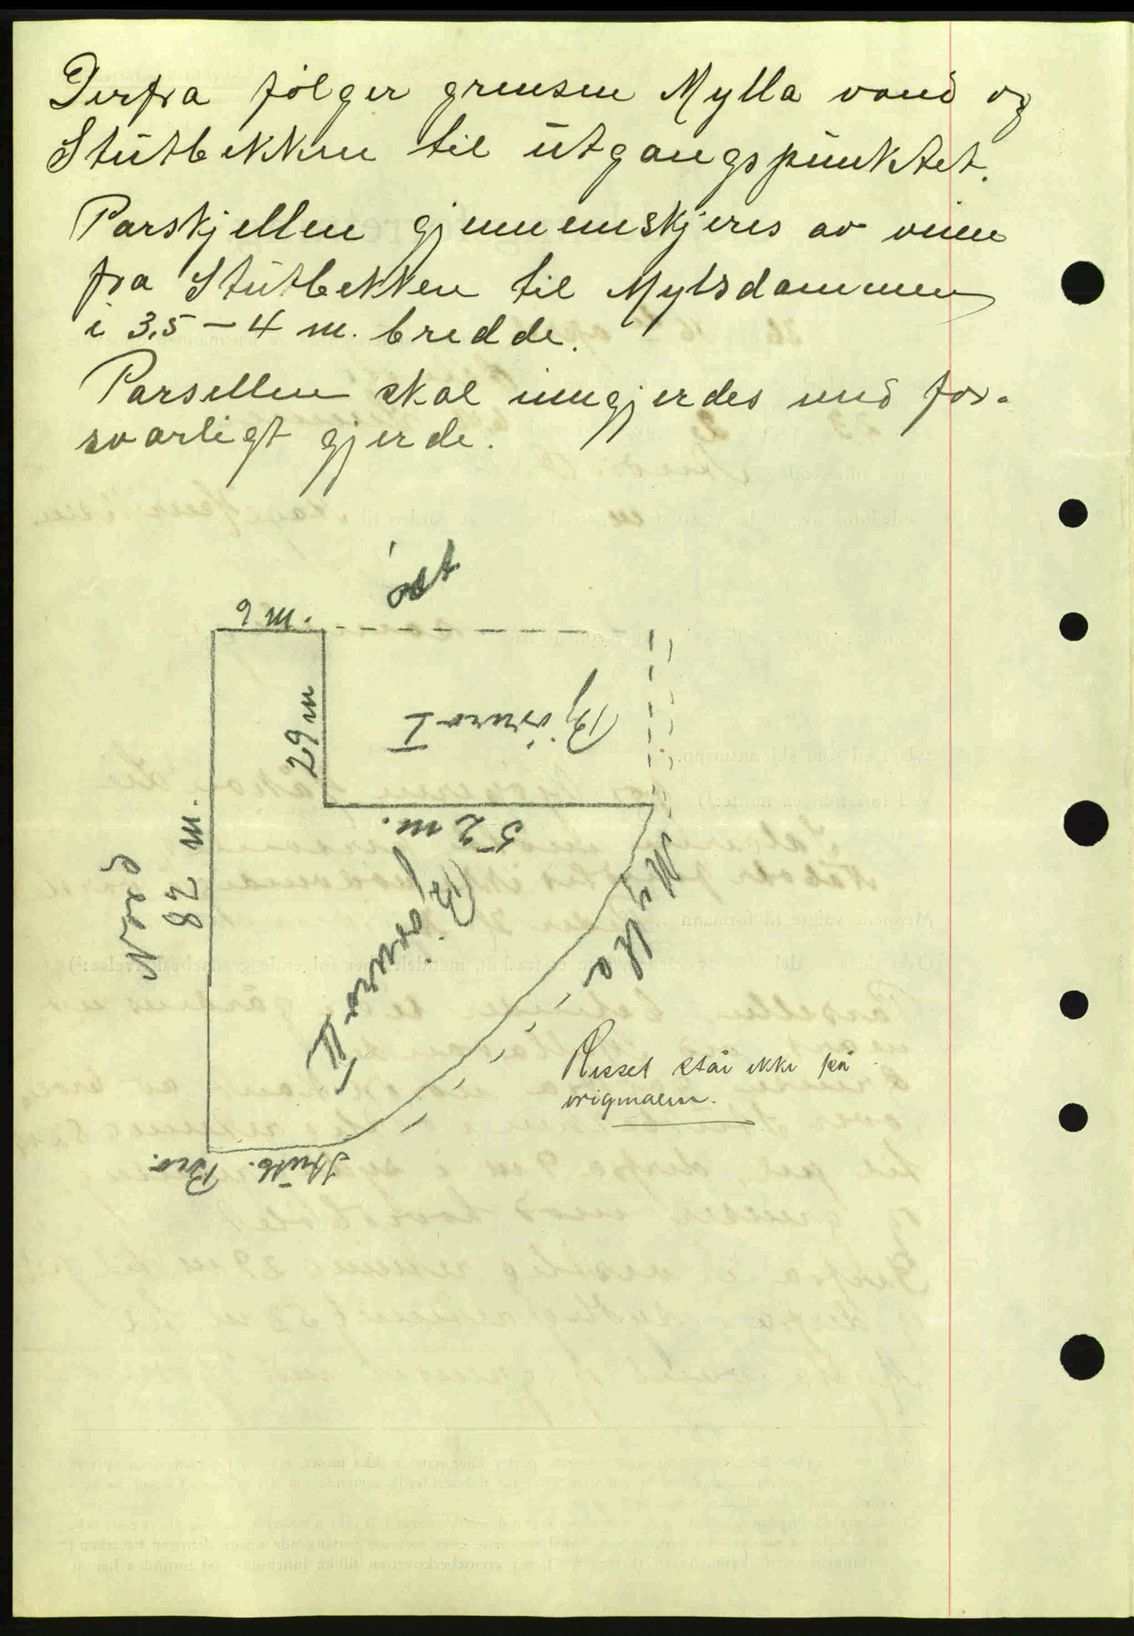 Derfra følger grensen Mylla vand og
Stutbekken til utgangspunktet.
Parskjellen gjennemskjeres av veien
fra Stutbekken til Myllsdammen
i 3,5 - 4 m. bredde.
Parsellen skal inngjerdes med for-
svarligt gjerde.
øst
9 m.
29 m
Bjørnro I
52 m.
Nord
82 m.
Bjørnro II
Mylla
Risset står ikke på
originalen.
Stutb. Bro.